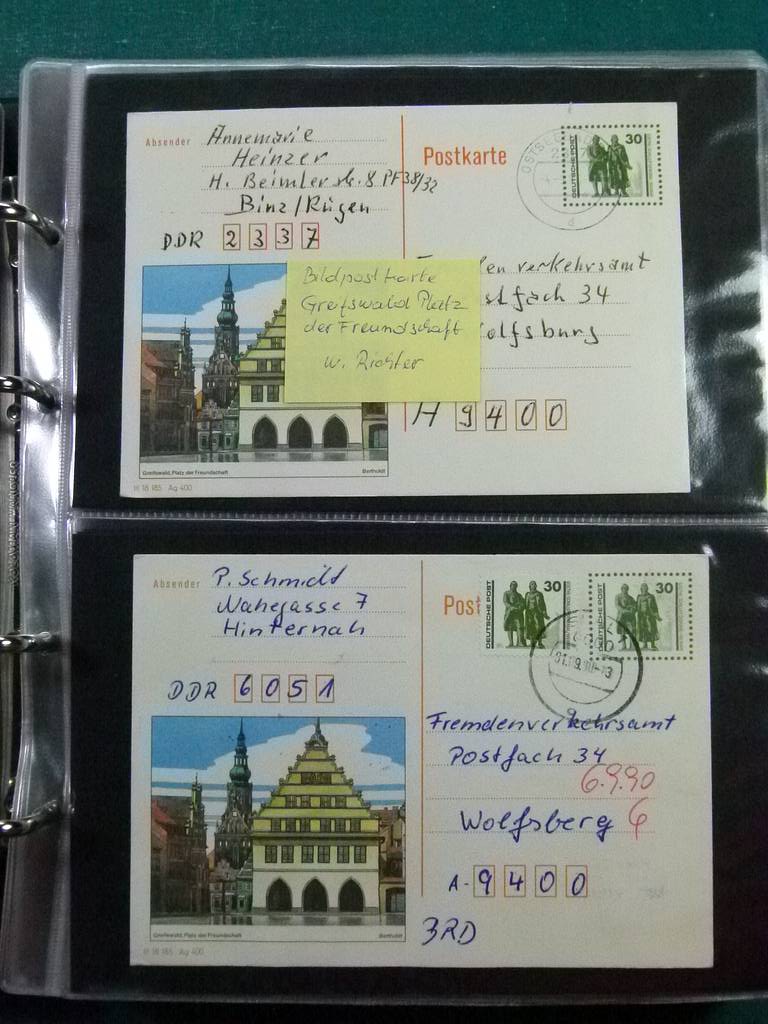 Absender Annemarie
Heinzer
H. Beimler str. 8 PF 38/32
Binz/Rügen
DDR 2337
Postkarte
DEUTSCHE POST 30
en verkehrsamt
stfach 34
olfsburg
9400
Bildpostkarte
Greifswald Platz
der Freundschaft
W. Richter
Greifswald, Platz der Freundschaft
Bertholdt
III 18 185 Ag 400
Absender P. Schmidt
Nahegasse 7
Hinternah
DDR 6051
Post
DEUTSCHE POST 30
DEUTSCHE POST 30
Fremdenverkehrsamt
Postfach 34
6.9.90
Wolfsberg
A-9400
BRD
Greifswald, Platz der Freundschaft
Bertholdt
III 18 185 Ag 400